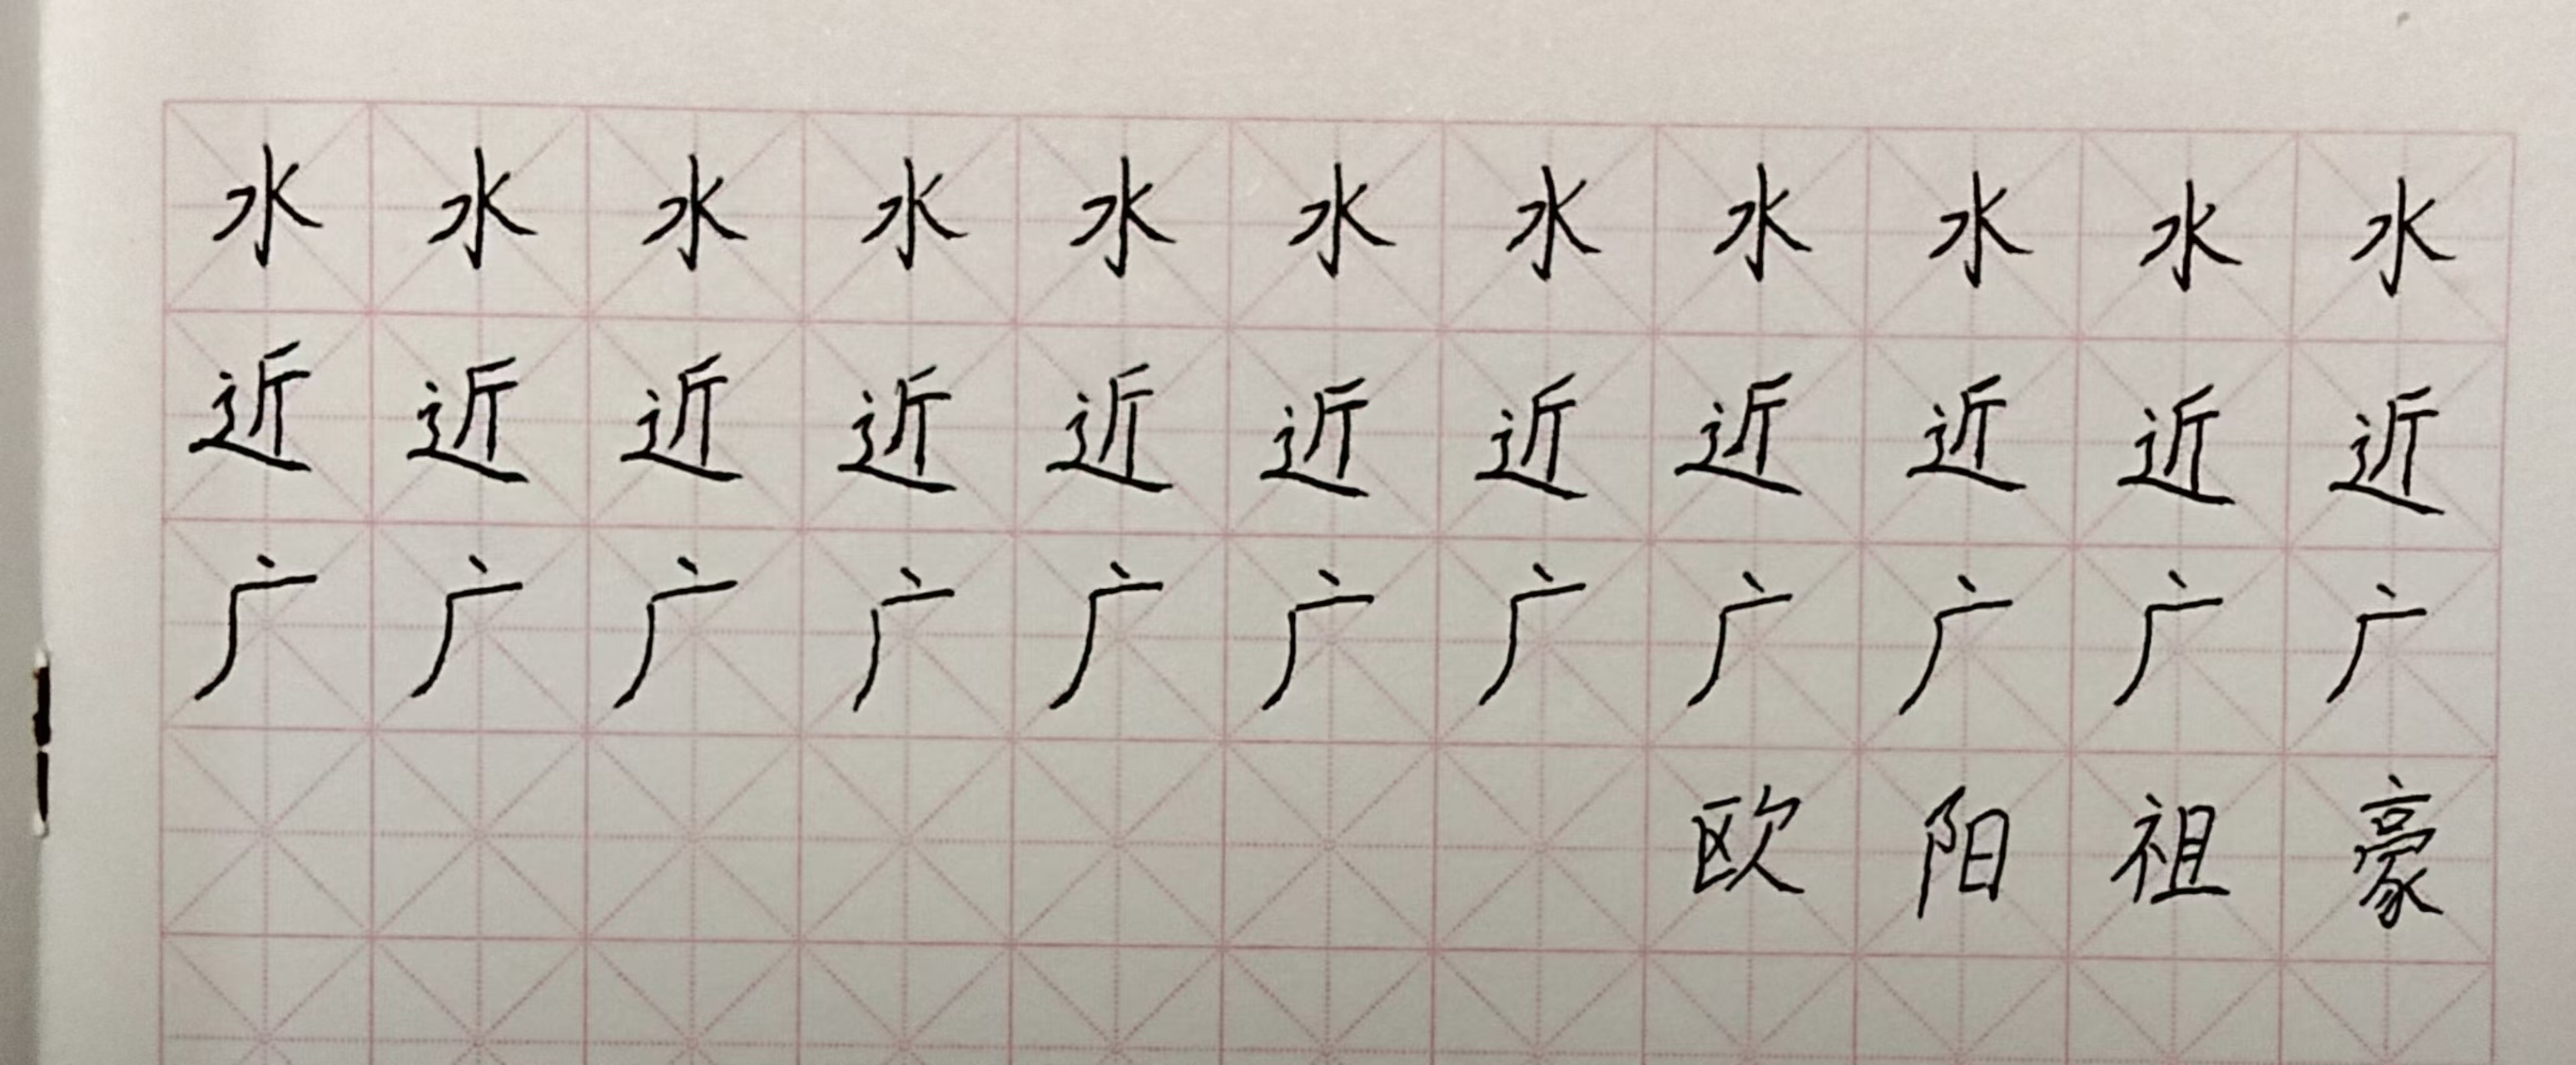 水水水水水水水水水水水
近近近近近近近近近近近
广广广广广广广广广广广
欧阳祖豪